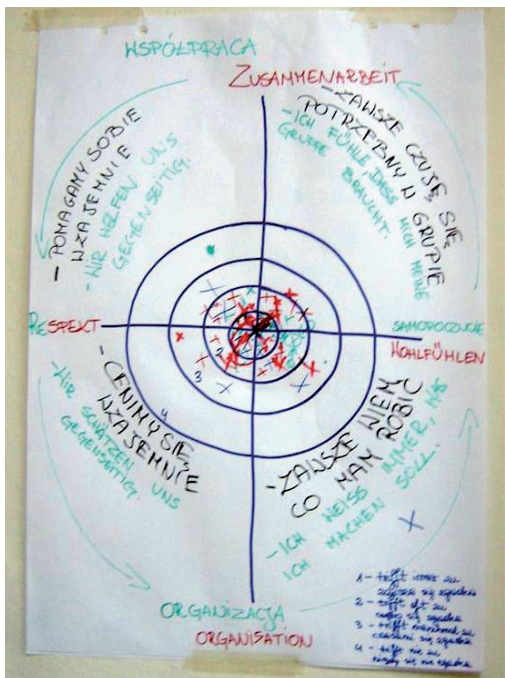 WSPÓŁPRACA
ZUSAMMENARBEIT
- POMAGAMY SOBIE
WZAJEMNIE
- WIR HELFEN UNS
GEGENSEITIG.
- ZAWSZE CZUJĘ SIĘ
POTRZEBNY W GRUPIE
- ICH FÜHLE, DASS MICH MEINE
GRUPPE BRAUCHT.
RESPEKT
SAMOPOCZUCIE
WOHLFÜHLEN
- CENIMY SIĘ
WZAJEMNIE
- WIR SCHÄTZEN UNS
GEGENSEITIG.
- ZAWSZE WIEM,
CO MAM ROBIĆ
- ICH WEISS IMMER, WAS
ICH MACHEN SOLL.
2
3
4
ORGANIZACJA
ORGANISATION
1 - trifft immer zu
zawsze się zgadza
2 - trifft oft zu
często się zgadza
3 - trifft manchmal zu
czasami się zgadza
4 - trifft nie zu
nigdy się nie zgadza